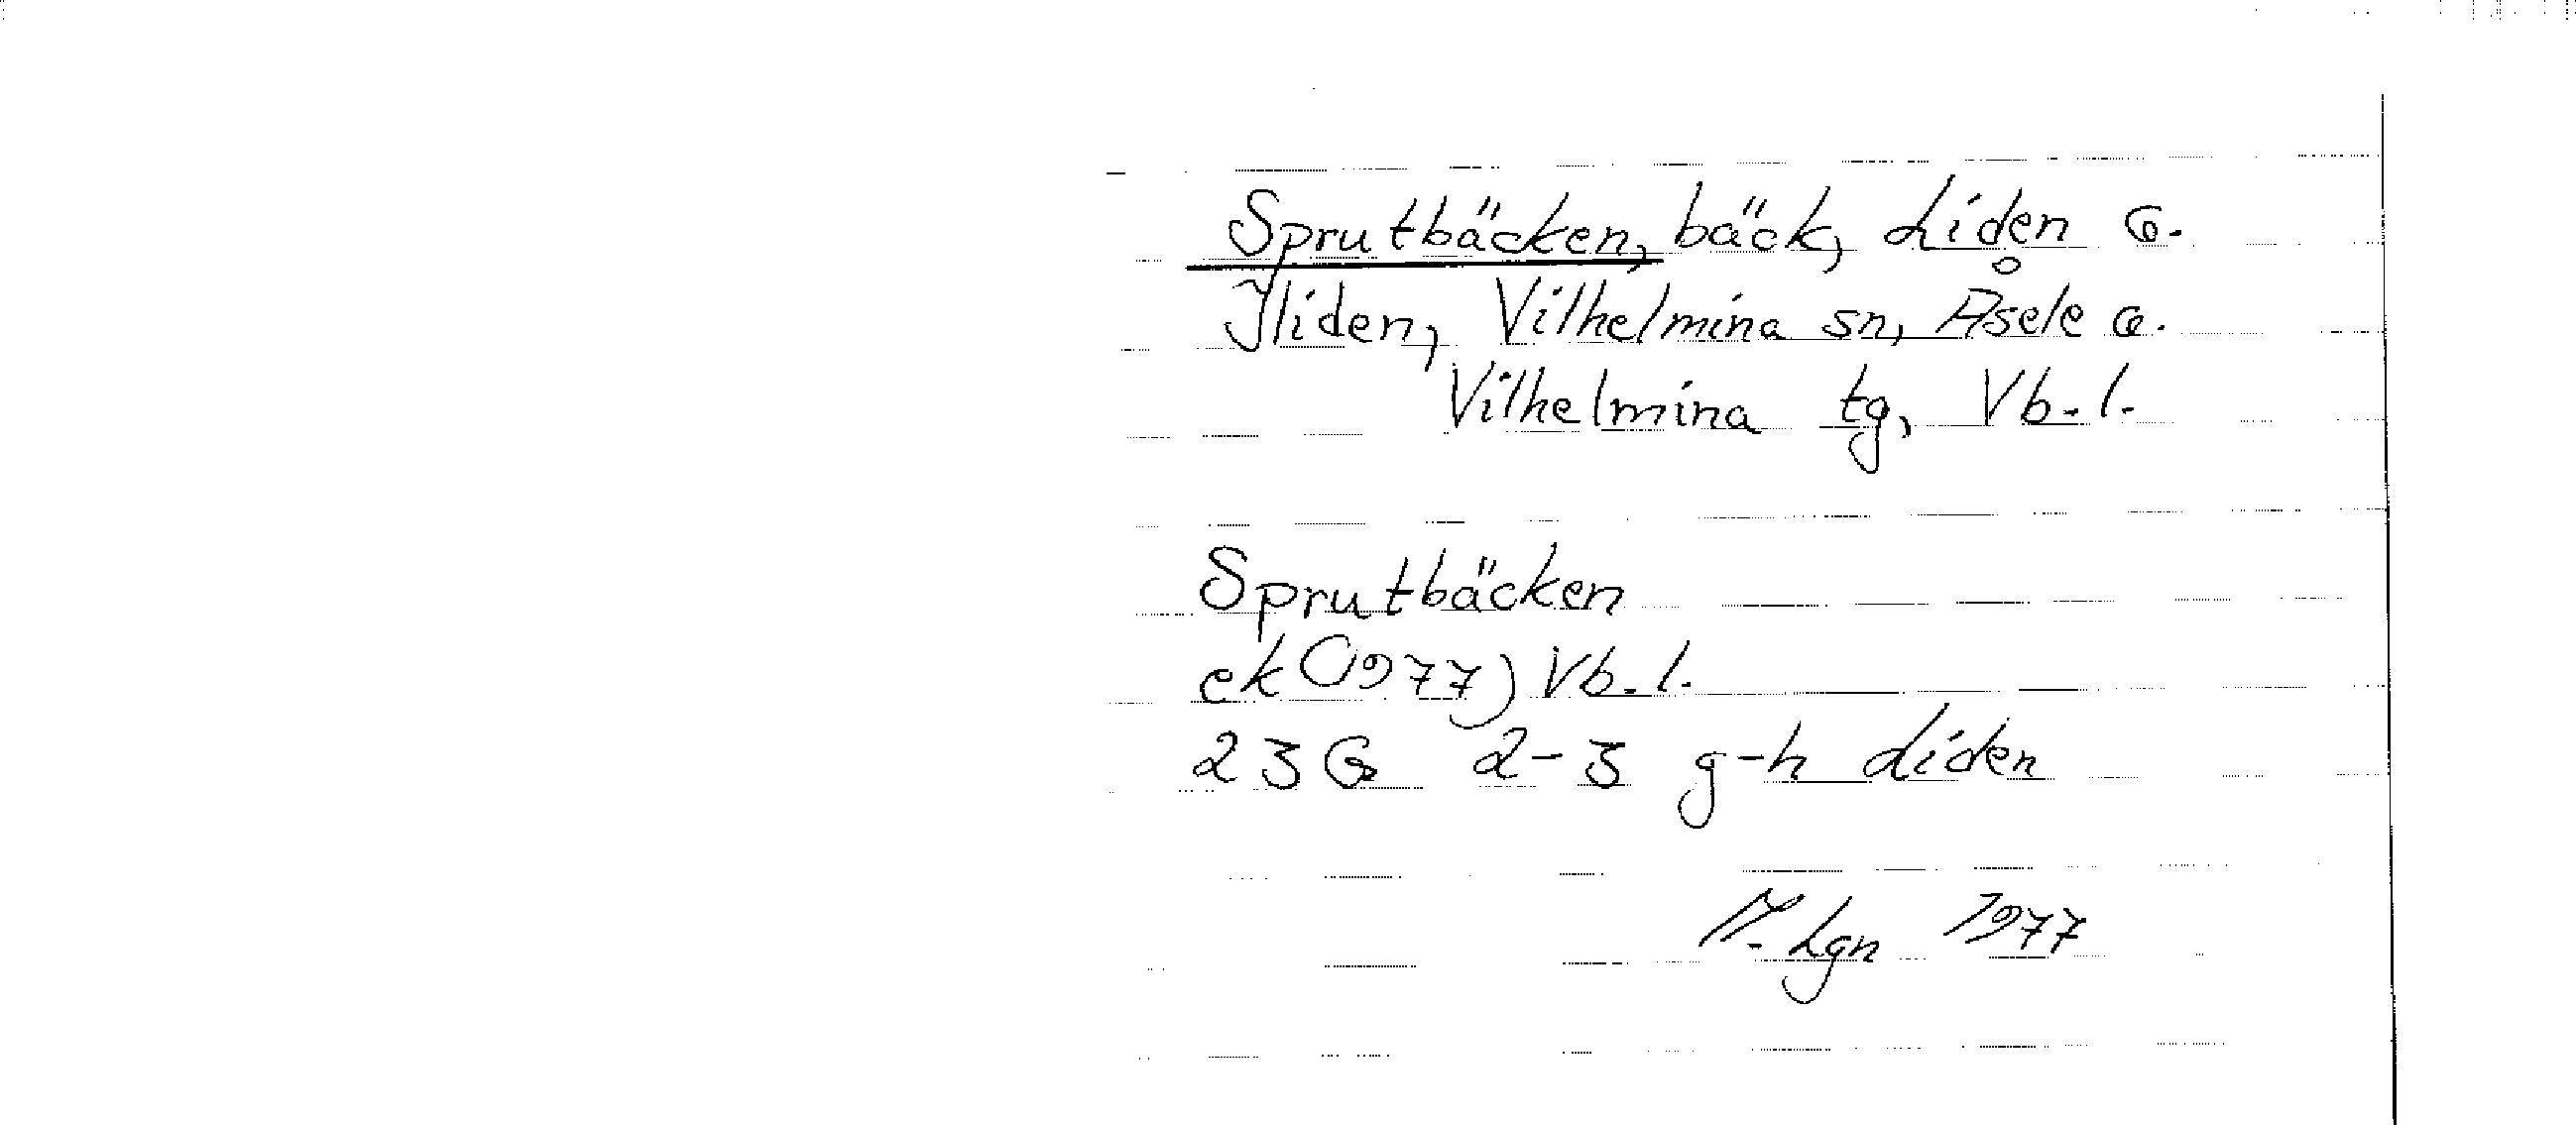 Sprutbäcken, bäck, Liden G.
Iliden, Vilhelmina sn, Åsele G.
Vilhelmina tg, Vb. l.
Sprutbäcken
ek (1977) Vb. l.
23G 2-3 g-h Liden
Lgn 1977